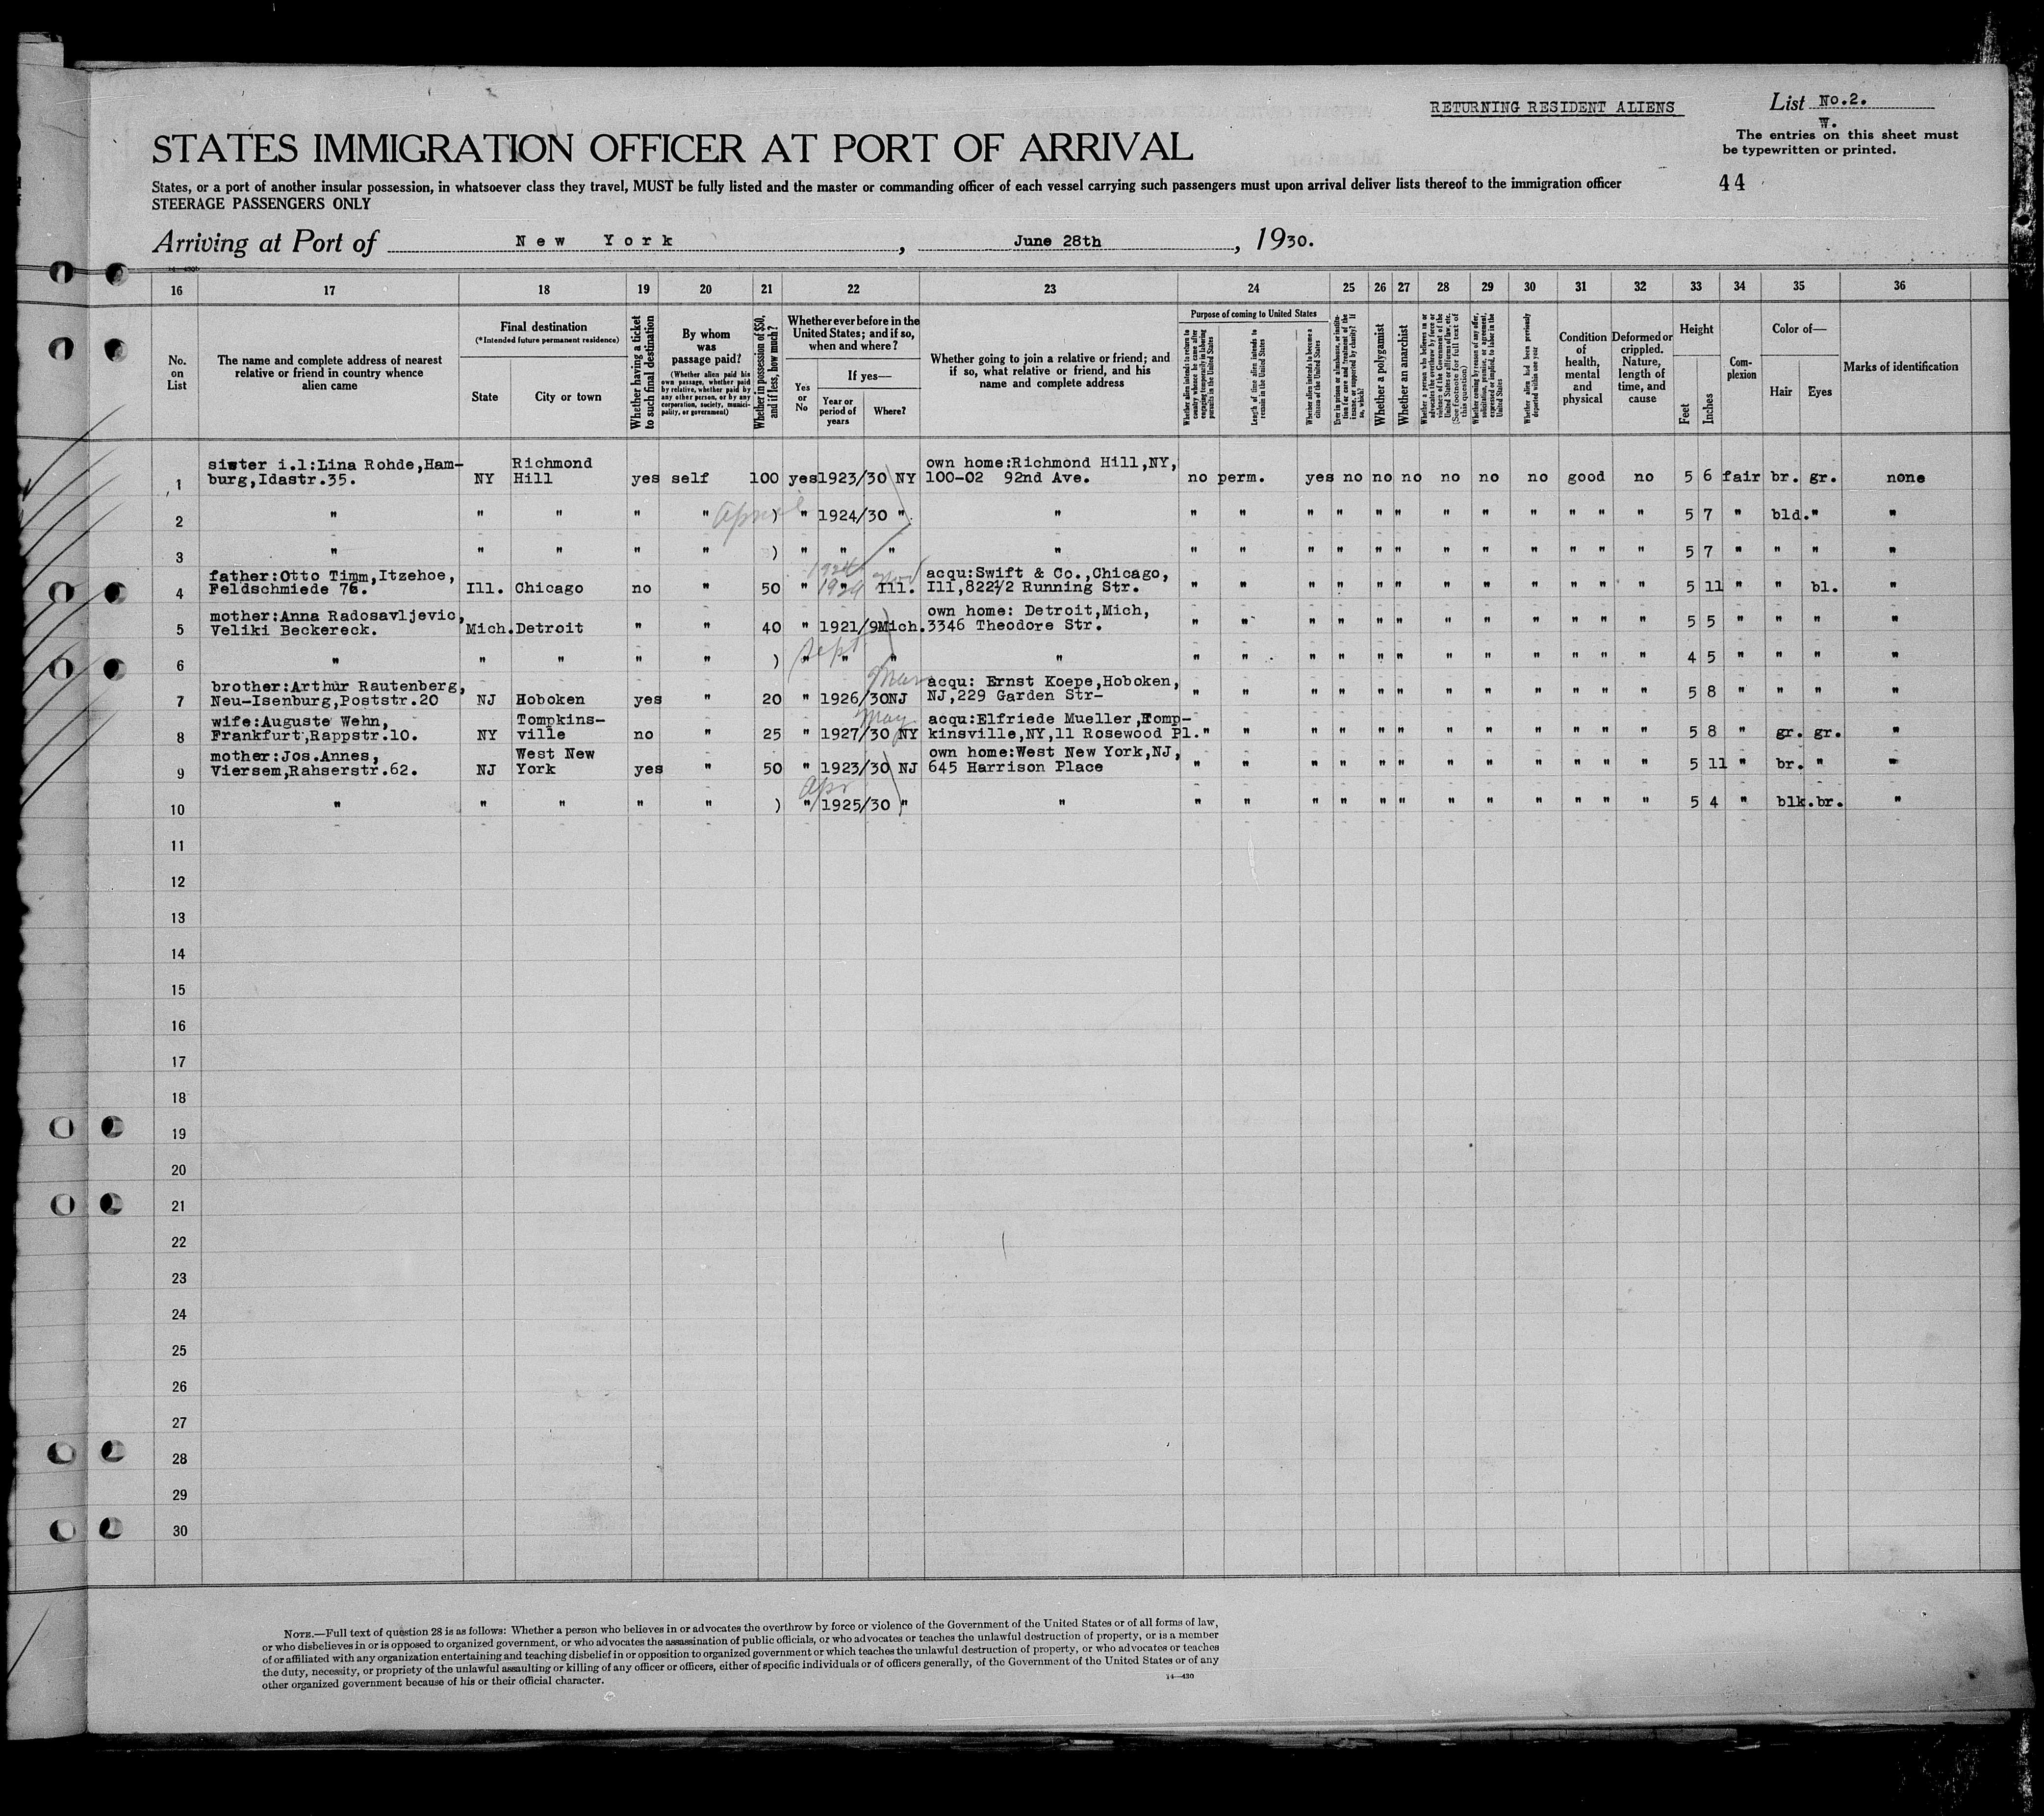 RETURNING RESIDENT ALIENS
List No.2.
W.
The entries on this sheet must
be typewritten or printed.
44
STATES IMMIGRATION OFFICER AT PORT OF ARRIVAL
States, or a port of another insular possession, in whatsoever class they travel, MUST be fully listed and the master or commanding officer of each vessel carrying such passengers must upon arrival deliver lists thereof to the immigration officer
STEERAGE PASSENGERS ONLY
Arriving at Port of New York, June 28th, 1930.
16 17 18 19 20 21 22 23 24 25 26 27 28 29 30 31 32 33 34 35 36
No. on List
The name and complete address of nearest relative or friend in country whence alien came
Final destination
(*Intended future permanent residence)
State
City or town
Whether having a ticket to such final destination
By whom was passage paid?
(Whether alien paid his own passage, whether paid by relative, whether paid by any other person, or by any corporation, society, municipality, or government)
Whether in possession of $50, and if less, how much?
Whether ever before in the United States; and if so, when and where?
Yes or No
If yes—
Year or period of years
Where?
Whether going to join a relative or friend; and if so, what relative or friend, and his name and complete address
Purpose of coming to United States
Whether alien intends to return to country whence he came after engaging temporarily in laboring pursuits in the United States
Length of time alien intends to remain in the United States
Whether alien intends to become a citizen of the United States
Ever in prison or almshouse, or institution for care and treatment of the insane, or supported by charity? If so, which?
Whether a polygamist
Whether an anarchist
Whether a person who believes in or advocates the overthrow by force or violence of the Government of the United States or all forms of law, etc. (See footnote for full text of this question)
Whether coming by reason of any offer, solicitation, promise, or agreement, expressed or implied, to labor in the United States
Whether alien had been previously deported within one year
Condition of health, mental and physical
Deformed or crippled. Nature, length of time, and cause
Height
Feet
Inches
Complexion
Color of—
Hair
Eyes
Marks of identification
sister i.l:Lina Rohde,Ham- Richmond own home:Richmond Hill,NY,
1 burg,Idastr.35. NY Hill yes self 100 yes 1923/30 NY 100-02 92nd Ave. no perm. yes no no no no no no good no 5 6 fair br. gr. none
2 " " " " " April ) " 1924/30 " " " " " " " " " " " " " " 5 7 " bld. " "
3 " " " " " ) " " " " " " " " " " " " " " " " 5 7 " " " "
father:Otto Timm,Itzehoe, 1924 Nov acqu:Swift & Co.,Chicago,
4 Feldschmiede 76. Ill. Chicago no " 50 " 1929 " Ill. Ill,822½ Running Str. " " " " " " " " " " " " 5 11 " " bl. "
mother:Anna Radosavljevic, own home: Detroit,Mich,
5 Veliki Beckereck. Mich. Detroit " " 40 " 1921/9 Mich. 3346 Theodore Str. " " " " " " " " " " " " 5 5 " " " "
6 " " " " " ) Sept " " " " " " " " " " " " " " " " 4 5 " " " "
brother:Arthur Rautenberg, Mar acqu: Ernst Koepe,Hoboken,
7 Neu-Isenburg,Poststr.20 NJ Hoboken yes " 20 " 1926/30 NJ NJ,229 Garden Str- " " " " " " " " " " " " 5 8 " " " "
wife:Auguste Wehn, Tompkins- May acqu:Elfriede Mueller,Tomp-
8 Frankfurt,Rappstr.10. NY ville no " 25 " 1927/30 NY kinsville,NY,11 Rosewood Pl. " " " " " " " " " " " " 5 8 " gr. gr. "
mother:Jos.Annes, West New own home:West New York,NJ,
9 Viersem,Rahserstr.62. NJ York yes " 50 " 1923/30 NJ 645 Harrison Place " " " " " " " " " " " " 5 11 " br. " "
10 " " " " " ) Apr " 1925/30 " " " " " " " " " " " " " " 5 4 " blk. br. "
11
12
13
14
15
16
17
18
19
20
21
22
23
24
25
26
27
28
29
30
NOTE.—Full text of question 28 is as follows: Whether a person who believes in or advocates the overthrow by force or violence of the Government of the United States or of all forms of law,
or who disbelieves in or is opposed to organized government, or who advocates the assassination of public officials, or who advocates or teaches the unlawful destruction of property, or is a member
of or affiliated with any organization entertaining and teaching disbelief in or opposition to organized government or which teaches the unlawful destruction of property, or who advocates or teaches
the duty, necessity, or propriety of the unlawful assaulting or killing of any officer or officers, either of specific individuals or of officers generally, of the Government of the United States or of any
other organized government because of his or their official character.
14—430